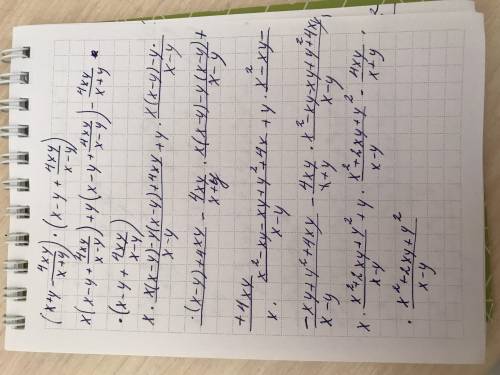 (x+y - 4xy/(x+y)) · (x-y + 4xy/(x-y))
x(x-y + 4xy/(x-y)) + y(x-y + 4xy/(x-y)) - 4xy/(x+y) ·
· (x-y + 4xy/(x-y))
x · (x(x-y)-y(x-y)+4xy)/(x-y) + y · (x(x-y)-y·
·(x-y)+4xy)/(x-y) - 4xy/(x+y) · (x(x-y)-y(x-y)+
+4xy)/(x-y)
x · (x²-xy-xy+y²+4x)/(x-y) + y · (x²-xy-
-xy+y²+4xy)/(x-y) - 4xy/(x+y) · (x²-xy-xy+y²+4xy)/(x-y)
x · (x²+2xy+y²)/(x-y) + y · (x²+2xy+y²)/(x-y) - 4xy/(x+y) ·
· (x²+2xy+y²)/(x-y)